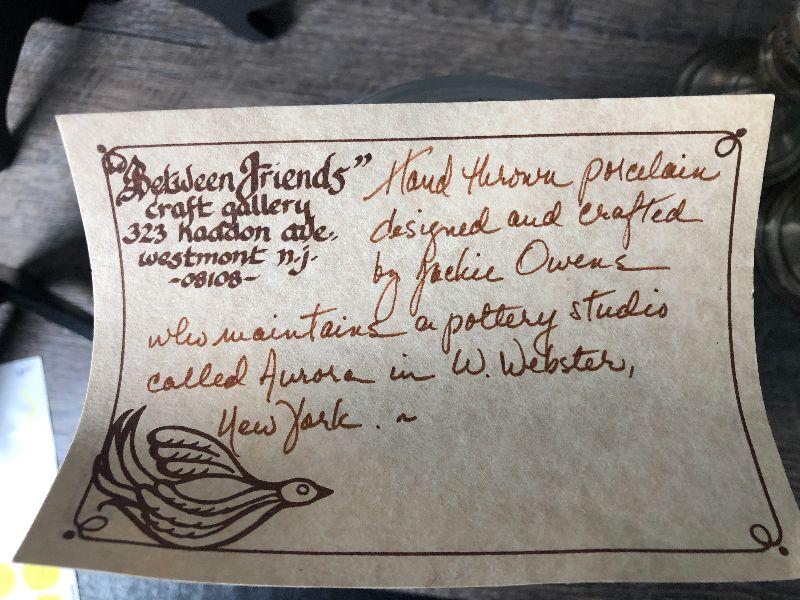 "Between Friends"
craft gallery
323 haddon ave.
westmont n.j.
-08108-
Hand thrown porcelain
designed and crafted
by Jackie Owens
who maintains a pottery studio
called Aurora in W. Webster,
New York. ~